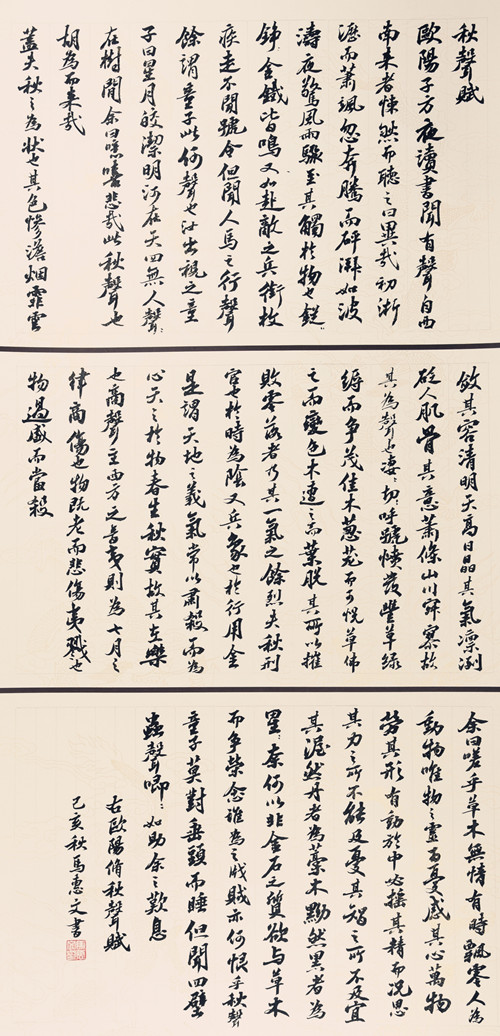 秋聲賦
歐陽子方夜讀書聞有聲自西
南来者悚然而聽之曰異哉初淅
瀝而蕭颯忽奔騰而砰湃如波
濤夜驚風雨驟至其觸於物也鏦
錚金鐵皆鳴又如赴敵之兵銜枚
疾走不聞號令但聞人馬之行聲
餘謂童子此何聲也汝出視之童
子曰星月皎潔明河在天四無人聲:
在樹間余曰噫嘻悲哉此秋聲也
胡為而来哉
蓋夫秋之為状也其色慘澹烟霏雲
斂其容清明天高日晶其氣凛冽
砭人肌骨其意蕭條山川寂寥故
其為聲也淒:切:呼號憤發豐草綠
縟而争茂佳木蔥蘢而可悅草拂
之而變色木遭之而葉脫其所以摧
敗零落者乃其一氣之餘烈夫秋刑
官也於時為陰又兵象也於行用金
是謂天地之義氣常以肅殺而為
心天之於物春生秋實故其在樂
也商聲主西方之音夷則為七月之
律商傷也物既老而悲傷夷戮也
物過盛而當殺
余曰嗟乎草木無情有時飄零人為
動物唯物之靈百憂感其心萬物
勞其形有動於中必搖其精而況思
其力之所不能及憂其智之所不及宜
其渥然丹者為藁木黟然黑者為
星:奈何以非金石之質欲與草木
而争榮念誰為之戕賊亦何恨乎秋聲
童子莫對垂頭而睡但聞四壁
蟲聲唧:如助余之歎息
右歐陽脩秋聲賦
己亥秋馬惠文書